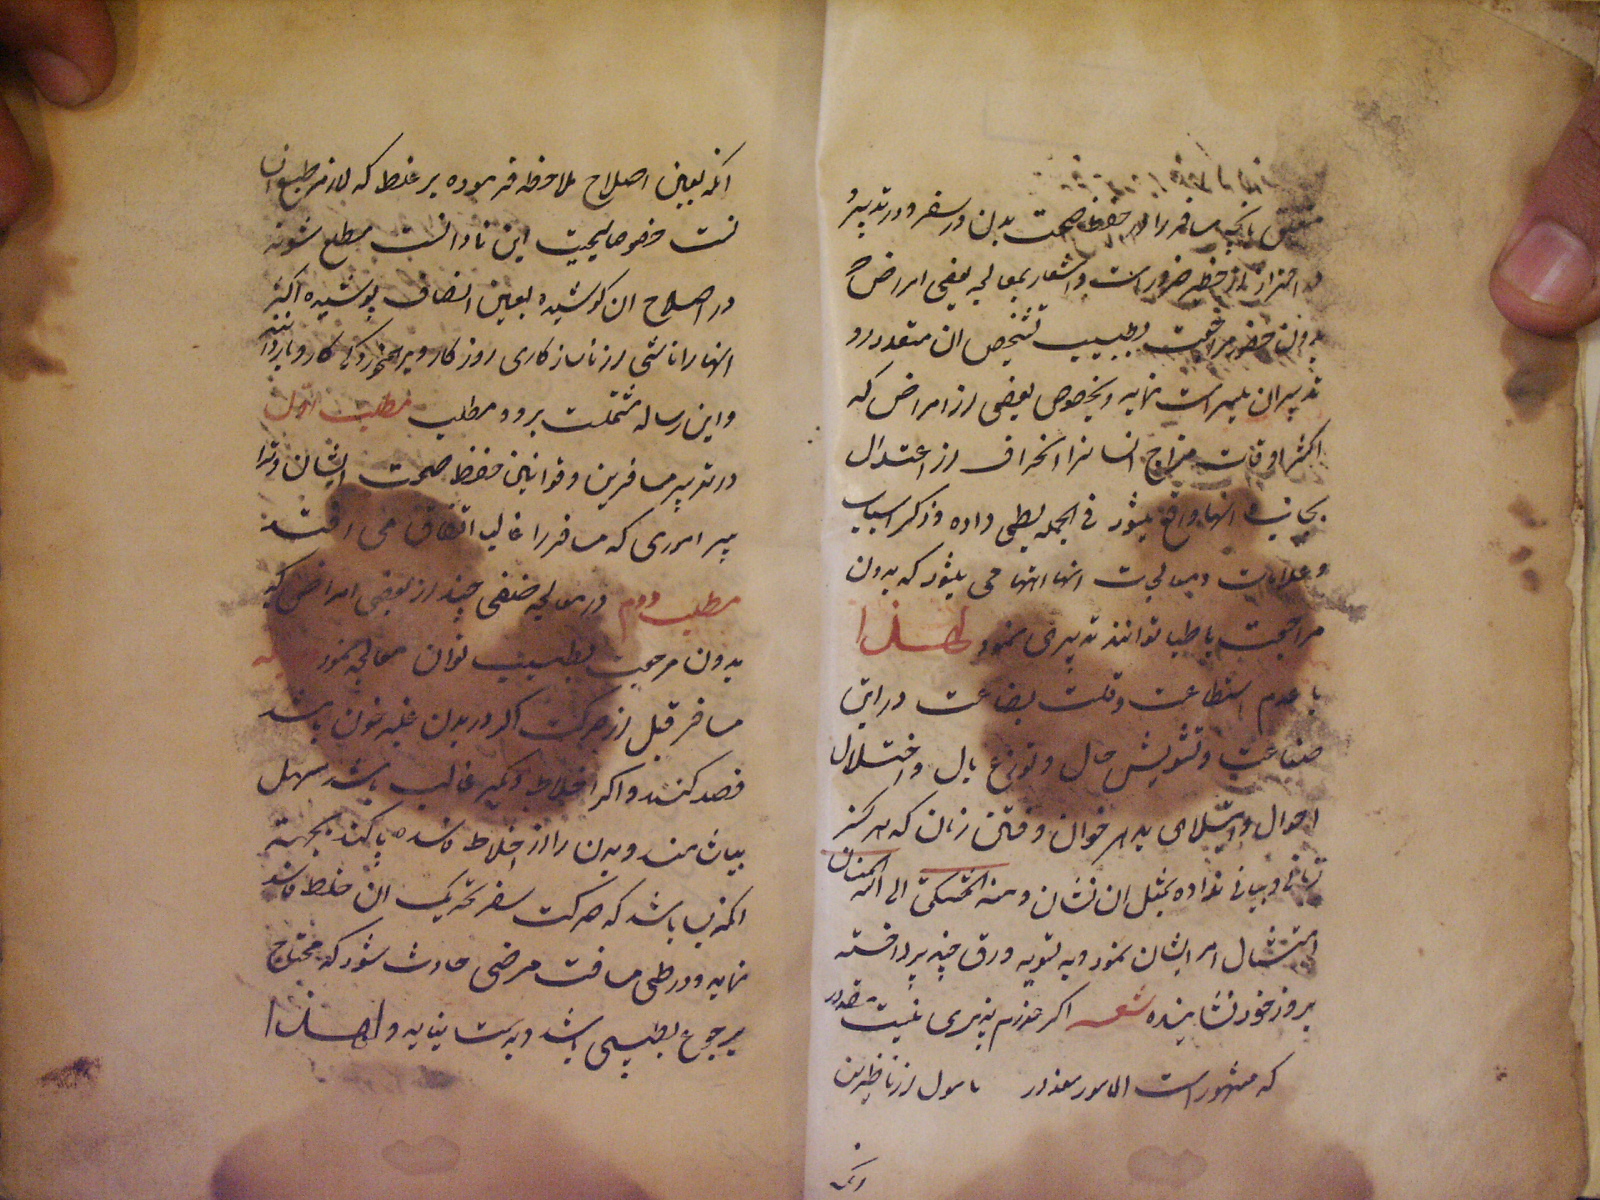 بآنچه مسافر را در حفظ صحت بدن در سفر و در تدبیر
و احتراز از خطر ضرور است و اشعار بمعالجه بعضی امراض که
بدون حضور مراجعت بطبیب تشخیص ان متعدد رو
تدبیر ان میسر است نماید و بخصوص بعضی از امراض که
اکثر اوقات مزاج انسانرا انحراف از اعتدال
بجانب انها واقع میشود فی الجمله بطی داده و ذکر اسباب
و علامات و معالجات انها انتها می یشود که بدون
مراجعت باطبا توانند تدبیری نمود لهذا
با عدم استطاعت و قلت بضاعت در این
صناعت و تشویش حال و توزع بال و اختلال
احوال و ابتلای بد هر خوان و فتن زمان که هرگز
زمانی و بیانی نداده بمثل ان نشان و منه المشتکی الی الله المنان
امتثال امر ایشان نمود و به تسوید ورق چند پرداخته
بروز خود نشانیده شعر اگر خرده پذیری نیست مقدور
که مشهور است المامور معذور مامول از ناظرین
انکه
انکه بعین اصلاح ملاحظه فرموده بر غلط که لازم طبع انسا
نست خصوصا بحیث این نادانست مطلع شوند
در اصلاح ان کوشیده بعین انصاف پوشیده اکثر
انها را ناشی از ناسازکاری روزکار و
و این رساله مشتملست بر دو مطلب مطلب اول
در تدبیر مسافرین و قوانین حفظ صحت ایشان و تدا
بیر اموری که مسافر را غالب اتفاق می افتد
مطلب دوم در معالجه صنفی چند از بعضی امراض که
بدون مرجعت بطبیب توان معالجه نمود
مسافر قبل از حرکت اگر در بدن غلبه خون باشد
فصد کنند و اگر اخلاط دیگر غالب باشد مسهل
بیاشامند و بدن را از اخلاط فاسده پاک کند بجهته
انکه باشد که حرکت سفر تحریک ان خلط فاسد
نماید و در طی مسافت مرضی حادث شود که محتاج
برجوع بطبیبی باشد و بدست نیاید و لهذا